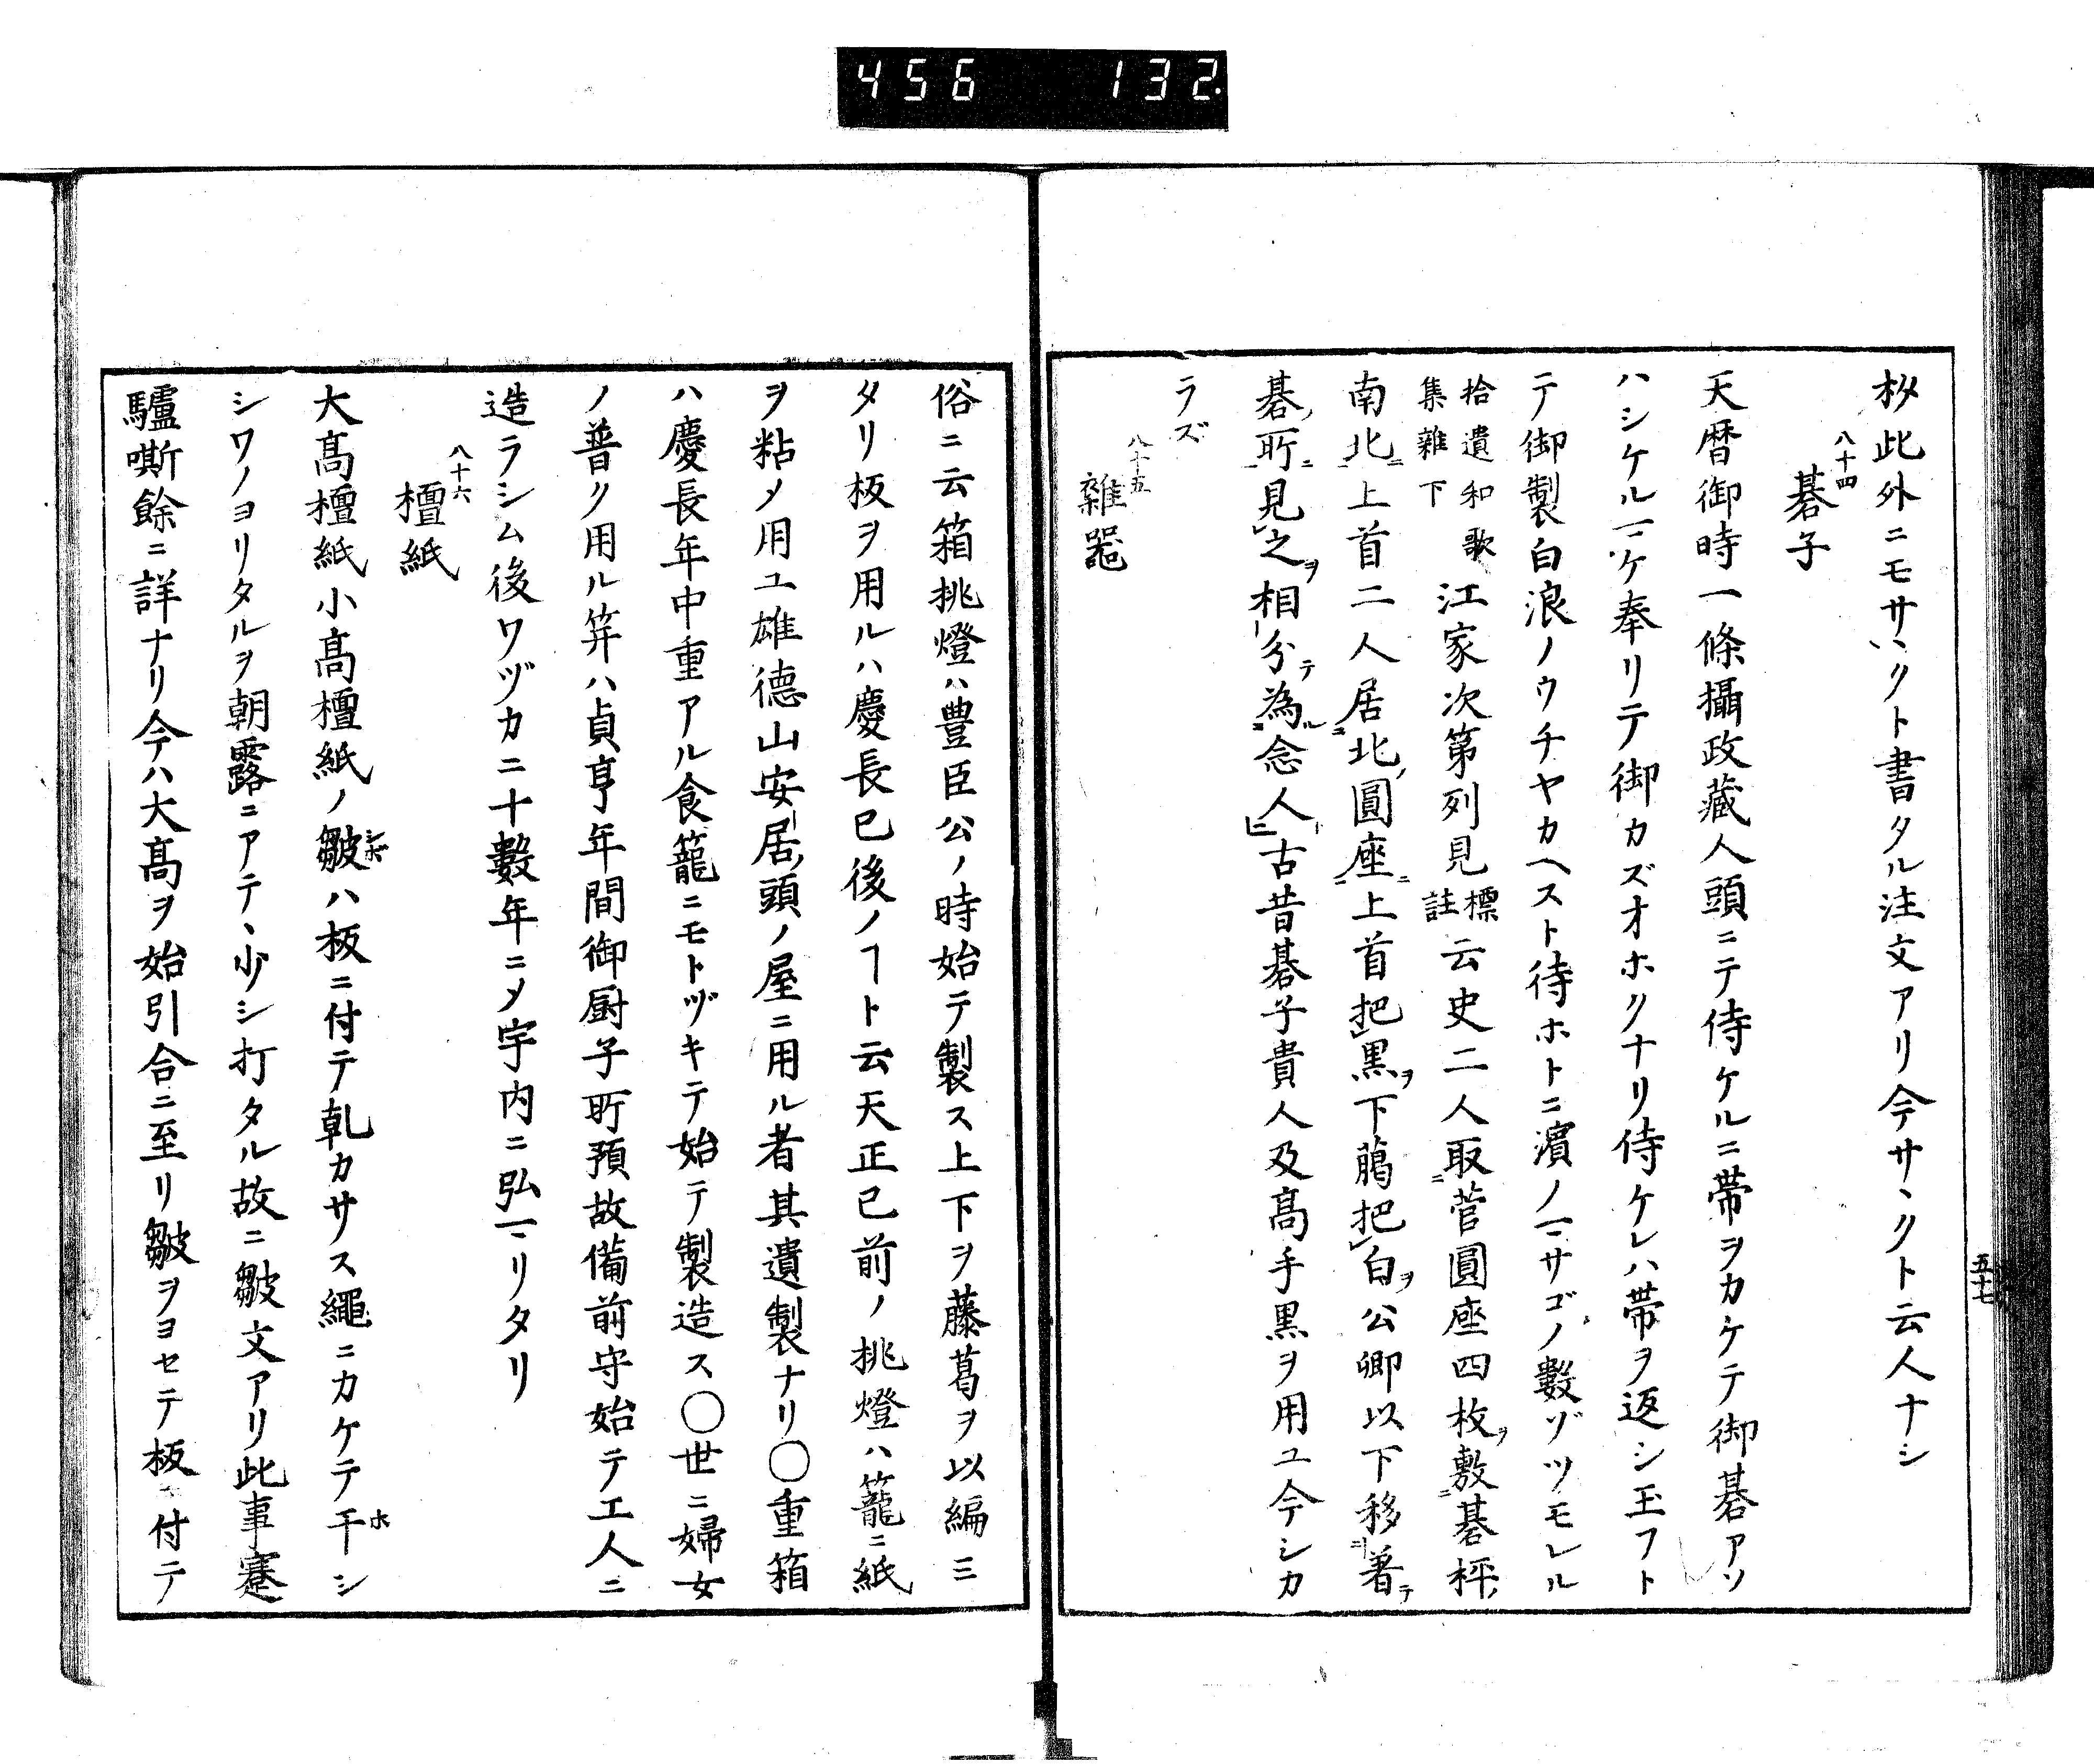 456 132
五十七
杪此外ニモサヽクト書タル注文アリ今サヽクト云人ナシ
八十四
碁子
天暦御時一條攝政藏人頭ニテ侍ケルニ帯ヲカケテ御碁アソ
ハシケルマケ奉リテ御カズオホクナリ侍ケレハ帯ヲ返シ玉フト
テ御製白浪ノウチヤカヘスト待ホトニ濱ノマサゴノ數ゾツモレル
拾遺和歌
集雜下
江家次第列見
標
註
云史二人取菅圓座四枚敷碁枰
南北上首二人居北圓座上首把黒下﨟把白公卿以下移著
碁所見之相分為念人古昔碁子貴人及髙手黒ヲ用ユ今シカ
ラズ
八十五
雜噐
俗ニ云箱挑燈ハ豊臣公ノ時始テ製ス上下ヲ藤葛ヲ以編ミ
タリ板ヲ用ルハ慶長已後ノヿト云天正已前ノ挑燈ハ籠ニ紙
ヲ粘メ用ユ雄德山安居頭ノ屋ニ用ル者其遺製ナリ〇重箱
ハ慶長年中重アル食籠ニモトヅキテ始テ製造ス〇世ニ婦女
ノ普ク用ル笄ハ貞享年間御厨子所預故備前守始テ工人ニ
造ラシム後ワヅカニ十數年ニメ宇内ニ弘マリタリ
八十六
檀紙
大髙檀紙小髙檀紙ノ皺ハ板ニ付テ乹カサス繩ニカケテ干シ
シワノヨリタルヲ朝露ニアテヽ少シ打タル故ニ皺文アリ此事蹇
驢嘶餘ニ詳ナリ今ハ大髙ヲ始引合ニ至リ皺ヲヨセテ板ニ付テ